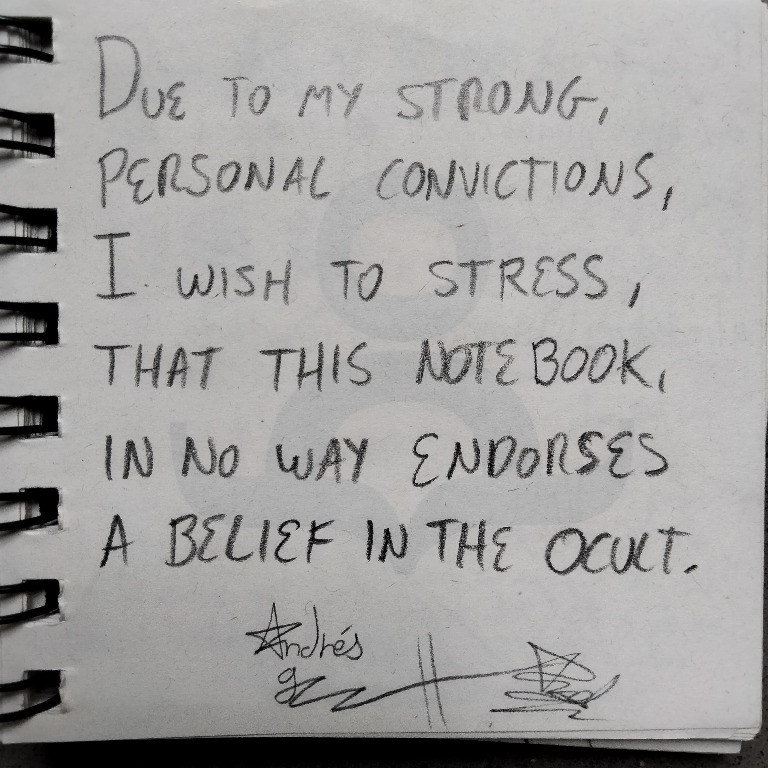 DUE TO MY STRONG,
PERSONAL CONVICTIONS,
I WISH TO STRESS,
THAT THIS NOTEBOOK,
IN NO WAY ENDORSES
A BELIEF IN THE OCULT.
Andrés